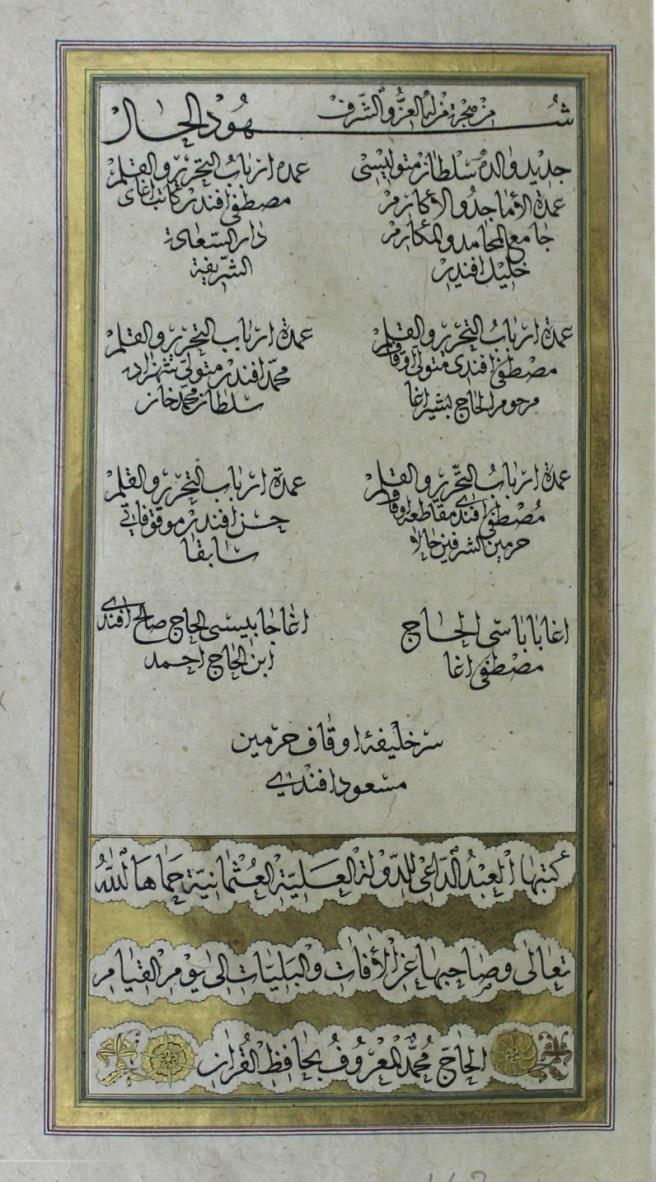 شهود الحال
من هجرة من له العز والشرف
جديد والده سلطان متوليسى
عمدة الأماجد والأكارم
جامع المحامد والمكارم
خليل افندى
عمدة ارباب التحرير والقلم
مصطفى افندى كاتب اغاى
دار السعادة
الشريفة
عمدة ارباب التحرير والقلم
مصطفى افندى متولى اوقاف
مرحوم الحاج بشير اغا
عمدة ارباب التحرير والقلم
محمد افندى متولى شهزاده
سلطان محمد خان
عمدة ارباب التحرير والقلم
مصطفى افندى مقاطعه اوقاف
حرمين الشرفين حالا
عمدة ارباب التحرير والقلم
حسن افندى موقوفاتى
سابقا
اغا باباسى الحاج
مصطفى اغا
اغا جابيسى الحاج صالح افندى
ابن الحاج احمد
سر خليفهٔ اوقاف حرمين
مسعود افندى
كتبها العبد الداعى للدولة العلية العثمانية حماها الله
تعالى وصاحبها عن الأفات والبليات الى يوم القيام
الحاج محمد المعروف بحافظ القران